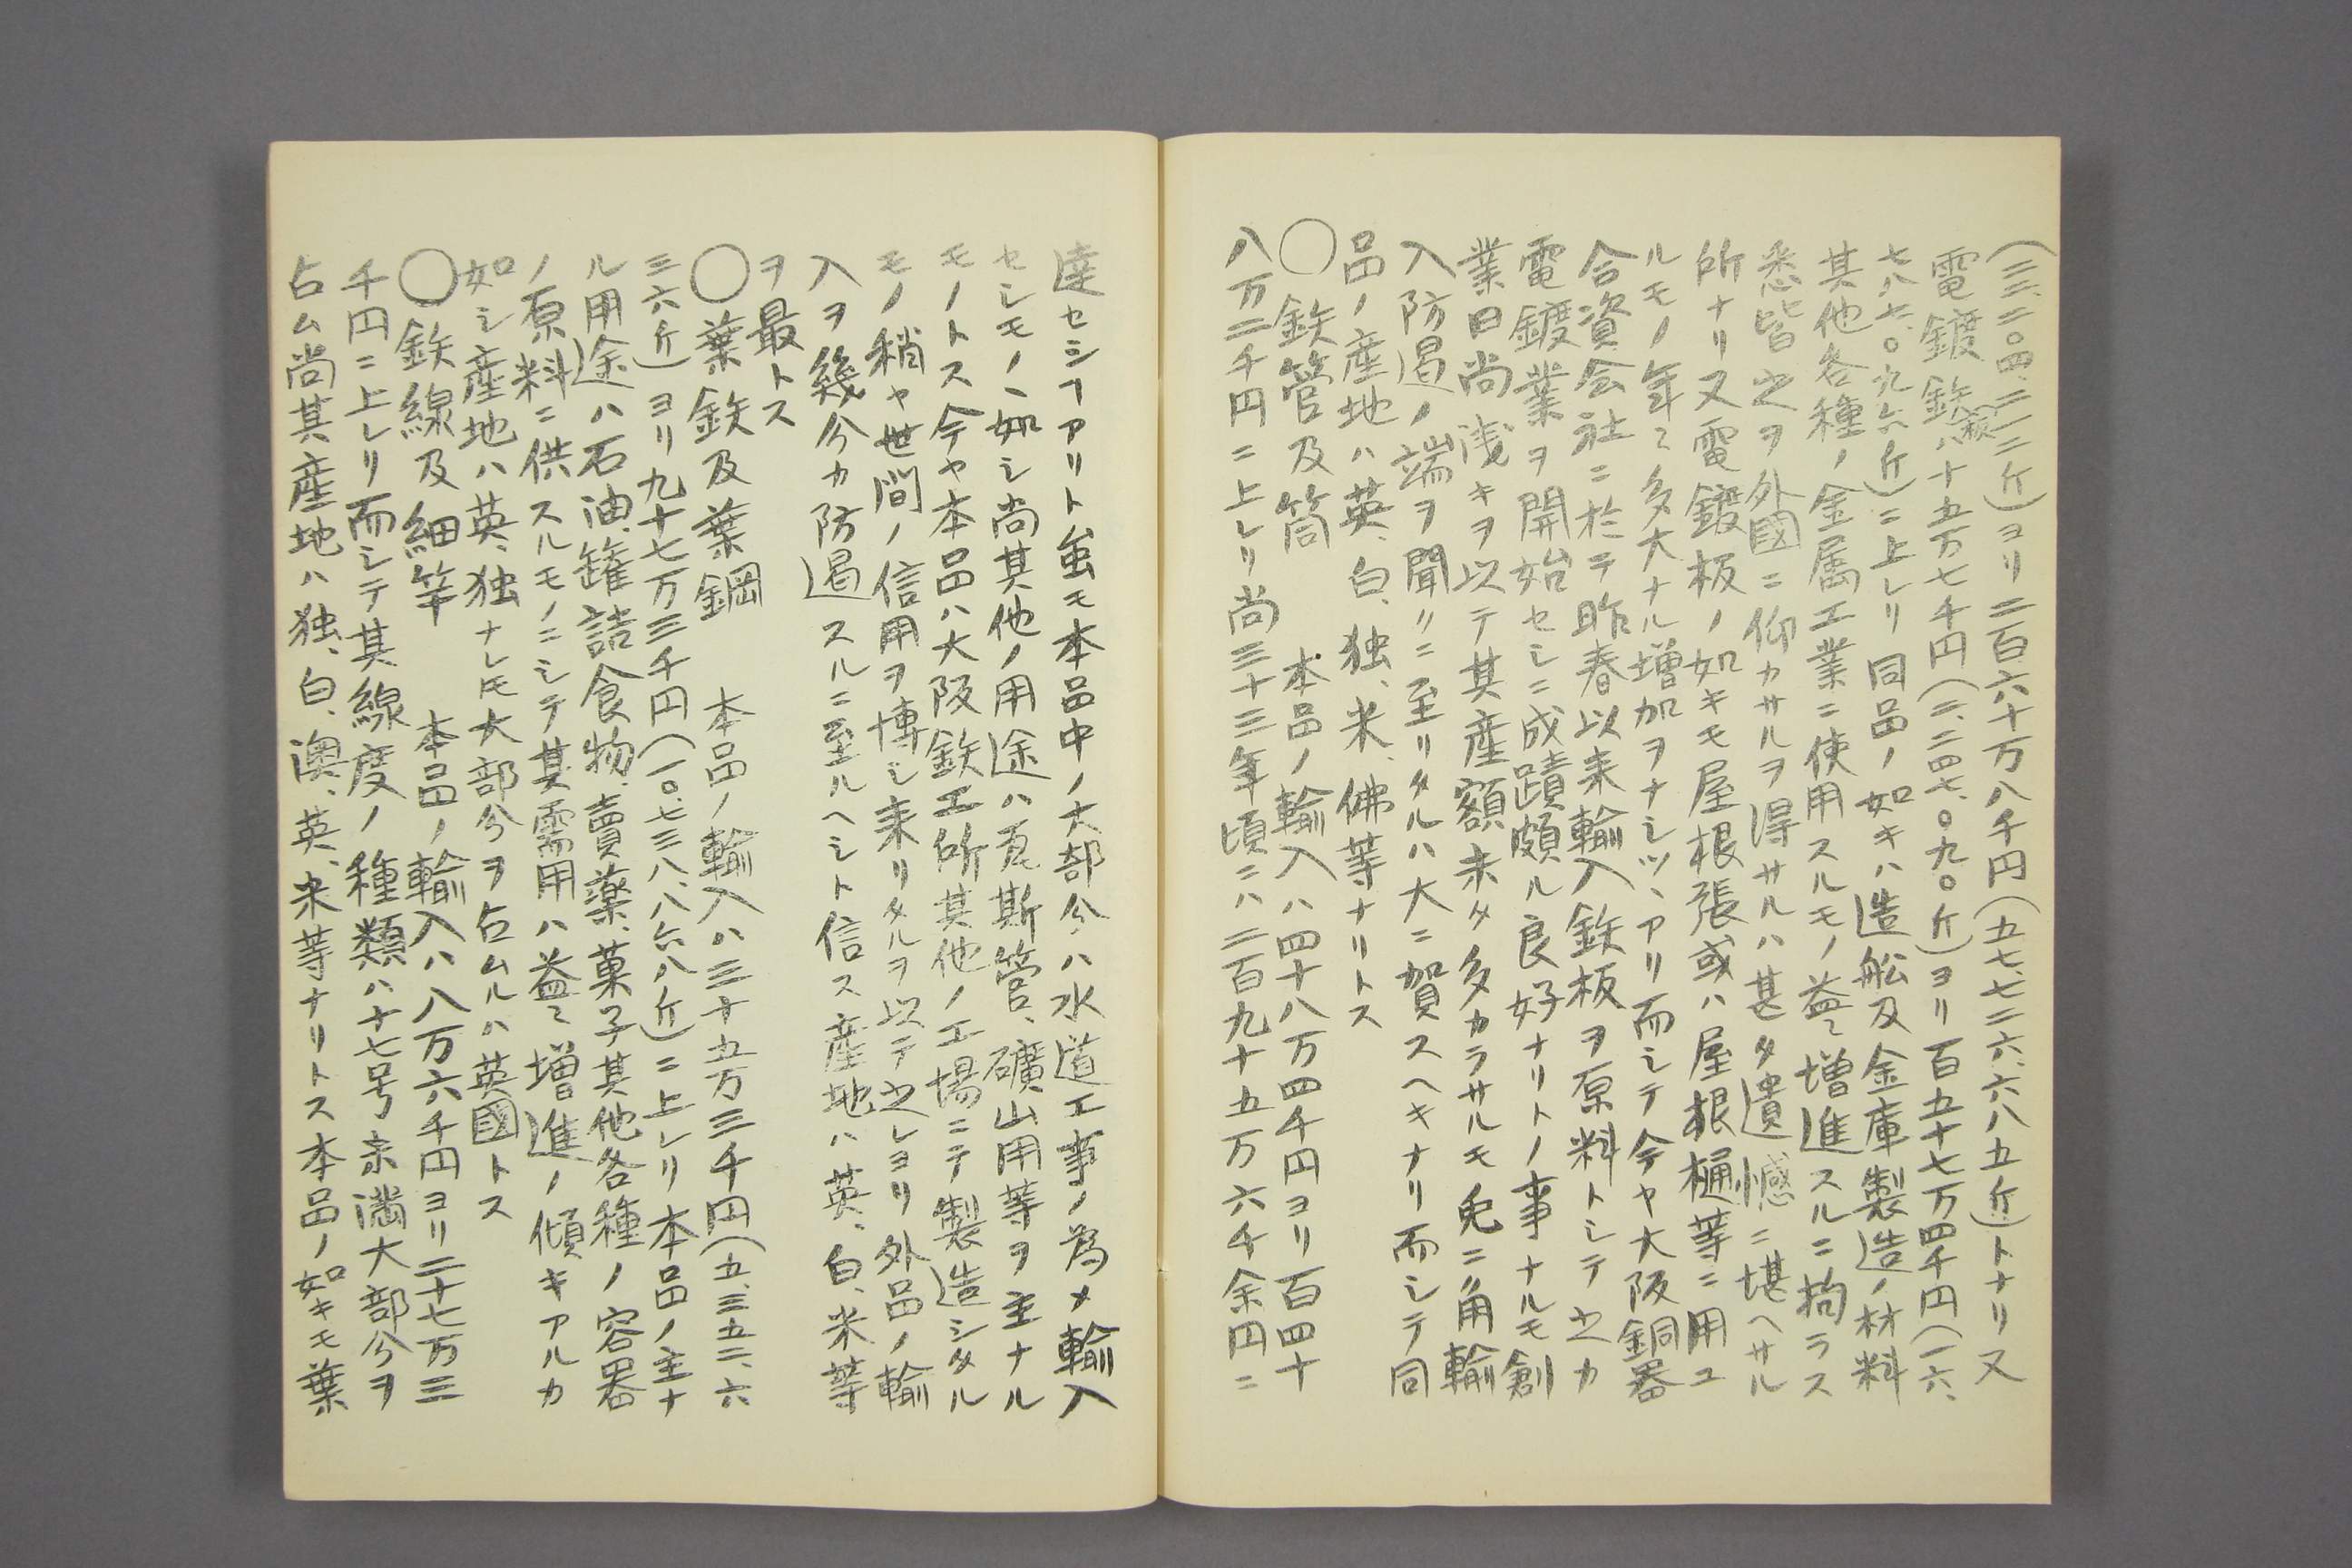 (三三、二〇四、二一二斤)ヨリ二百六十万八千円(五七、七二六、六八五斤)トナリ又
電鍍鉄板ハ十五万七千円(二、二四七、〇九〇斤)ヨリ百五十七万四千円(一六、
七八七、〇九六斤)ニ上レリ同品ノ如キハ造舩及金庫製造ノ材料
其他各種ノ金属工業ニ使用スルモノ益々増進スルニ拘ラス
悉皆之ヲ外國ニ仰カサルヲ得サルハ甚タ遺憾ニ堪ヘサル
所ナリ又電鍍板ノ如キモ屋根張或ハ屋根樋等ニ用ユ
ルモノ年々多大ナル増加ヲナシツヽアリ而シテ今ヤ大阪銅器
合資会社ニ於テ昨春以来輸入鉄板ヲ原料トシテ之カ
電鍍業ヲ開始セシニ成蹟頗ル良好ナリトノ事ナルモ創
業日尚浅キヲ以テ其産額未タ多カラサルモ兎ニ角輸
入防遏ノ端ヲ開クニ至リタルハ大ニ賀スヘキナリ而シテ同
品ノ産地ハ英、白、独、米、佛等ナリトス
〇鉄管及筒　本品ノ輸入ハ四十八万四千円ヨリ百四十
八万二千円ニ上レリ尚三十三年頃ニハ二百九十五万六千余円ニ
達セシヿアリト虽モ本品中ノ大部分ハ水道工事ノ為メ輸入
セシモノヽ如シ尚其他ノ用途ハ瓦斯管、礦山用等ヲ主ナル
モノトス今ヤ本品ハ大阪鉄工所其他ノ工場ニテ製造シタル
モノ稍ヤ世間ノ信用ヲ博シ来リタルヲ以テ之レヨリ外品ノ輸
入ヲ幾分カ防遏スルニ至ルヘシト信ス産地ハ英、白、米等
ヲ最トス
〇葉鉄及葉鋼　本品ノ輸入ハ三十五万三千円(五、三五二、六
三六斤)ヨリ九十七万三千円(一〇、七三八、八六八斤)ニ上レリ本品ノ主ナ
ル用途ハ石油、罐詰食物、賣薬、菓子其他各種ノ容器
ノ原料ニ供スルモノニシテ其需用ハ益々増進ノ傾キアルカ
如シ産地ハ英、独ナレ𪜈大部分ヲ占ムルハ英國トス
〇鉄線及細竿　本品ノ輸入ハ八万六千円ヨリ二十七万三
千円ニ上レリ而シテ其線度ノ種類ハ十七号未満大部分ヲ
占ム尚其産地ハ独、白、澳、英、米等ナリトス本品ノ如キモ葉